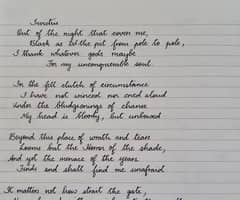 Invictus
Out of the night that covers me,
Black as the pit from pole to pole,
I thank whatever gods maybe
For my unconquerable soul.
In the fell clutch of circumstance
I have not winced nor cried aloud
Under the bludgeonings of chance
My head is bloody, but unbowed
Beyond this place of wrath and tears
Looms but the Horror of the shade,
And yet the menace of the years
Finds and shall find me unafraid
It matters not how strait the gate,